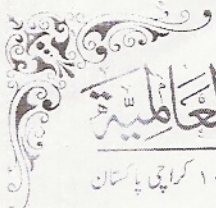 لعَالَمِيَّة
۱ کراچی پاکستان